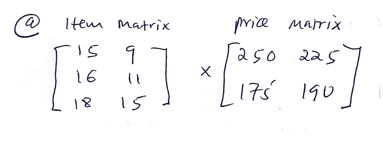 @ Item Matrix Price Matrix
[15 9 16 11 18 15] × [250 225 175 190]